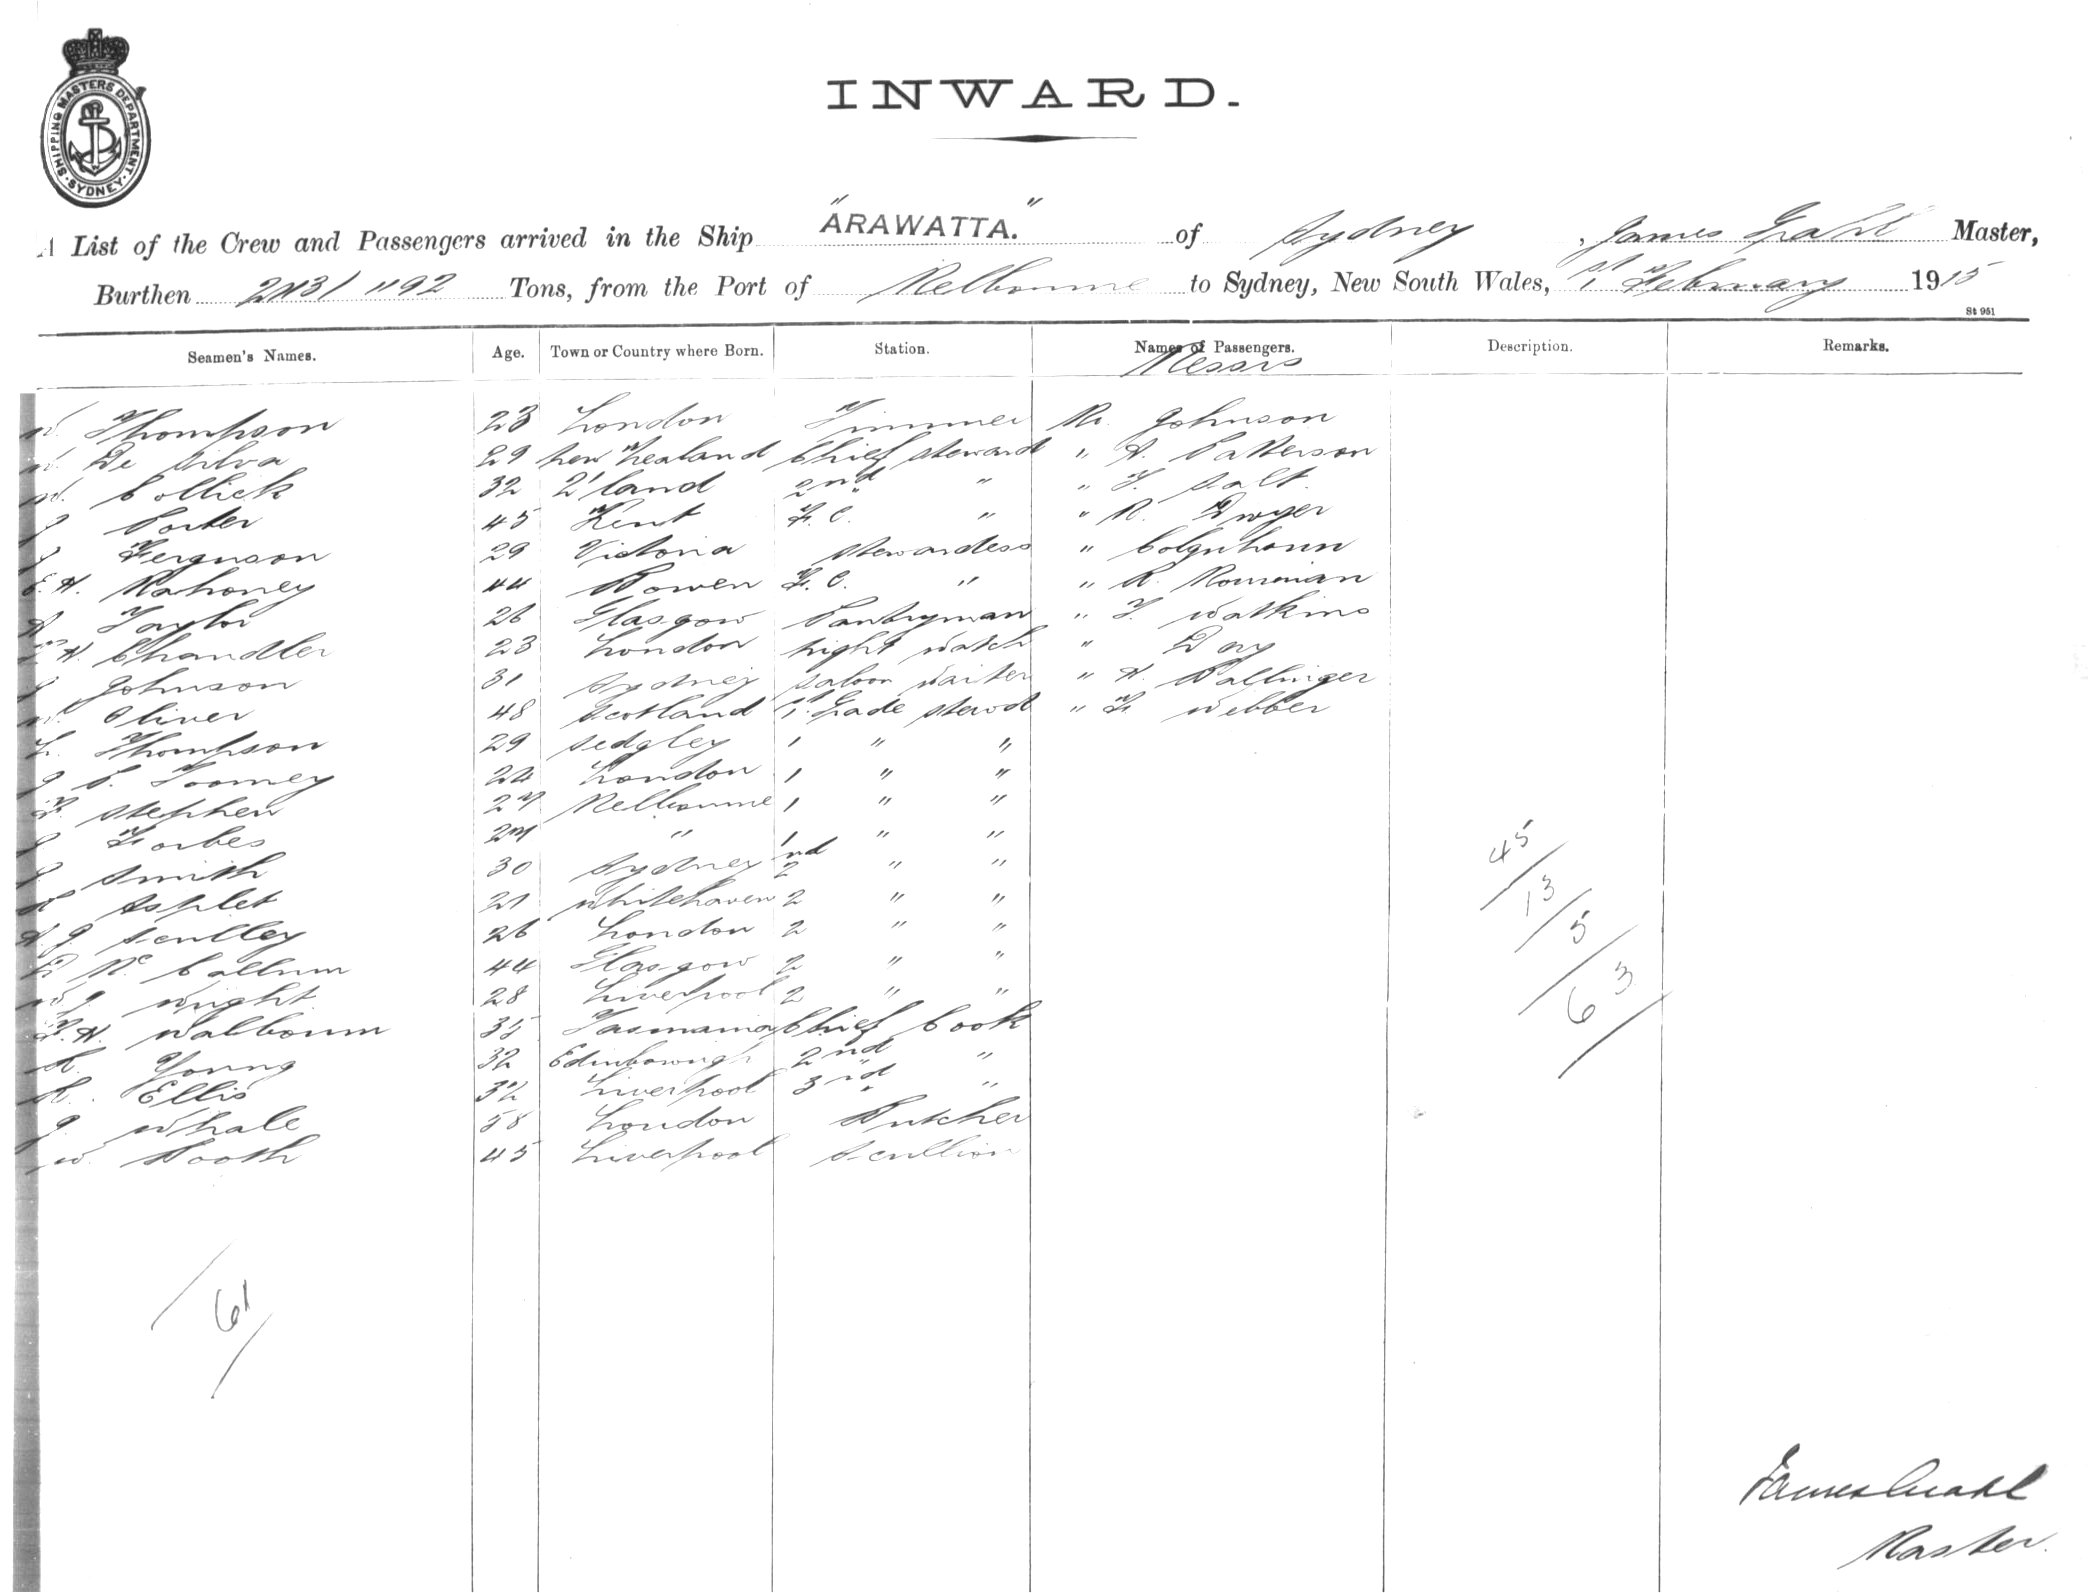 SHIPPING MASTERS DEPARTMENT. SYDNEY.
INWARD.
A List of the Crew and Passengers arrived in the Ship "ARAWATTA." of Sydney, James Grahl Master,
Burthen Tons, from the Port of Melbourne to Sydney, New South Wales, 1st February 1915
St 951
Seamen's Names. Age. Town or Country where Born. Station. Names of Passengers. Description. Remarks.
Messrs
W. Thompson 23 London Trimmer Mr. Johnson
W. De Silva 29 New Zealand Chief Steward " A. Patterson
W. Collick 32 Q'land 2nd " " T. Salt
J Porter 45 Kent F.C. " " M. Dwyer
J Ferguson 29 Victoria Stewardess " Colquhoun
E. H. Mahoney 44 Bowen F.C. " " R.
A Taylor 26 Glasgow Pantryman " T. Watkins
F. H. Chandler 23 London Night Watch " Day
J Johnson 31 Sydney Saloon Waiter " H. Ballinger
W. Oliver 48 Scotland 1st Grade Stewd " F. Webber
L. Thompson 29 Sedgley 1 " "
J P. Toomey 24 London 1 " "
F. Stephen 27 Melbourne 1 " "
J Forbes 27 " 1 " "
J Smith 30 Sydney 2nd " "
Asplet 21 Whitehaven 2 " "
A. J. Sculley 26 London 2 " "
D Mc Callum 44 Glasgow 2 " "
W J Wright 28 Liverpool 2 " "
F. H. Walbourn 35 Tasmania Chief Cook
A. Young 32 Edinborough 2nd "
A. Ellis 32 Liverpool 3rd "
J. Whale 58 London Butcher
W. Booth 45 Liverpool Scullion
45
13
5
63
61
James Grahl
Master.